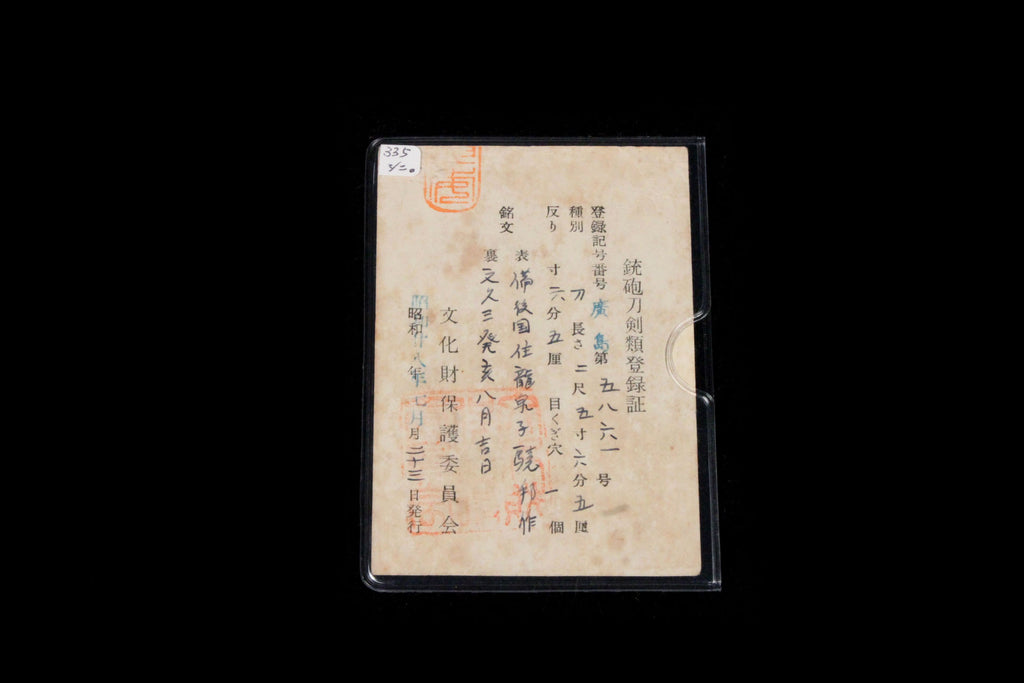 銃砲刀剣類登録証
登録記号番号 廣島 第 五八六一 号
種別 刀 長さ 二尺 五寸 六分 五厘
反り 寸 六分 五厘 目くぎ穴 一 個
銘文 表 備後国住龍泉子驍邦作
裏 文久三癸亥八月吉日
文化財保護委員会
昭和 廿八年 七月 二十三日発行
335